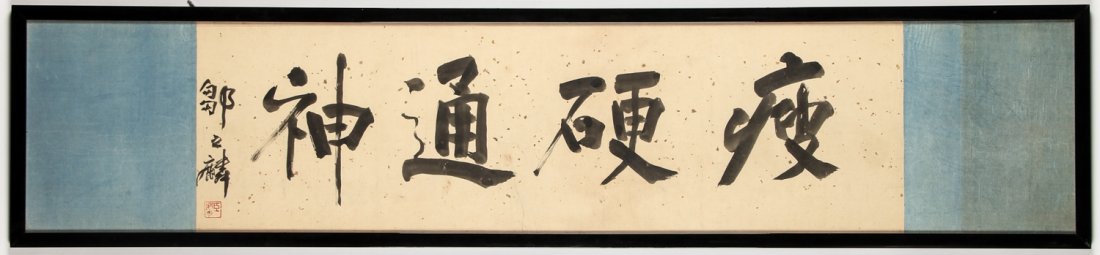 瘦硬通神
鄒之麟